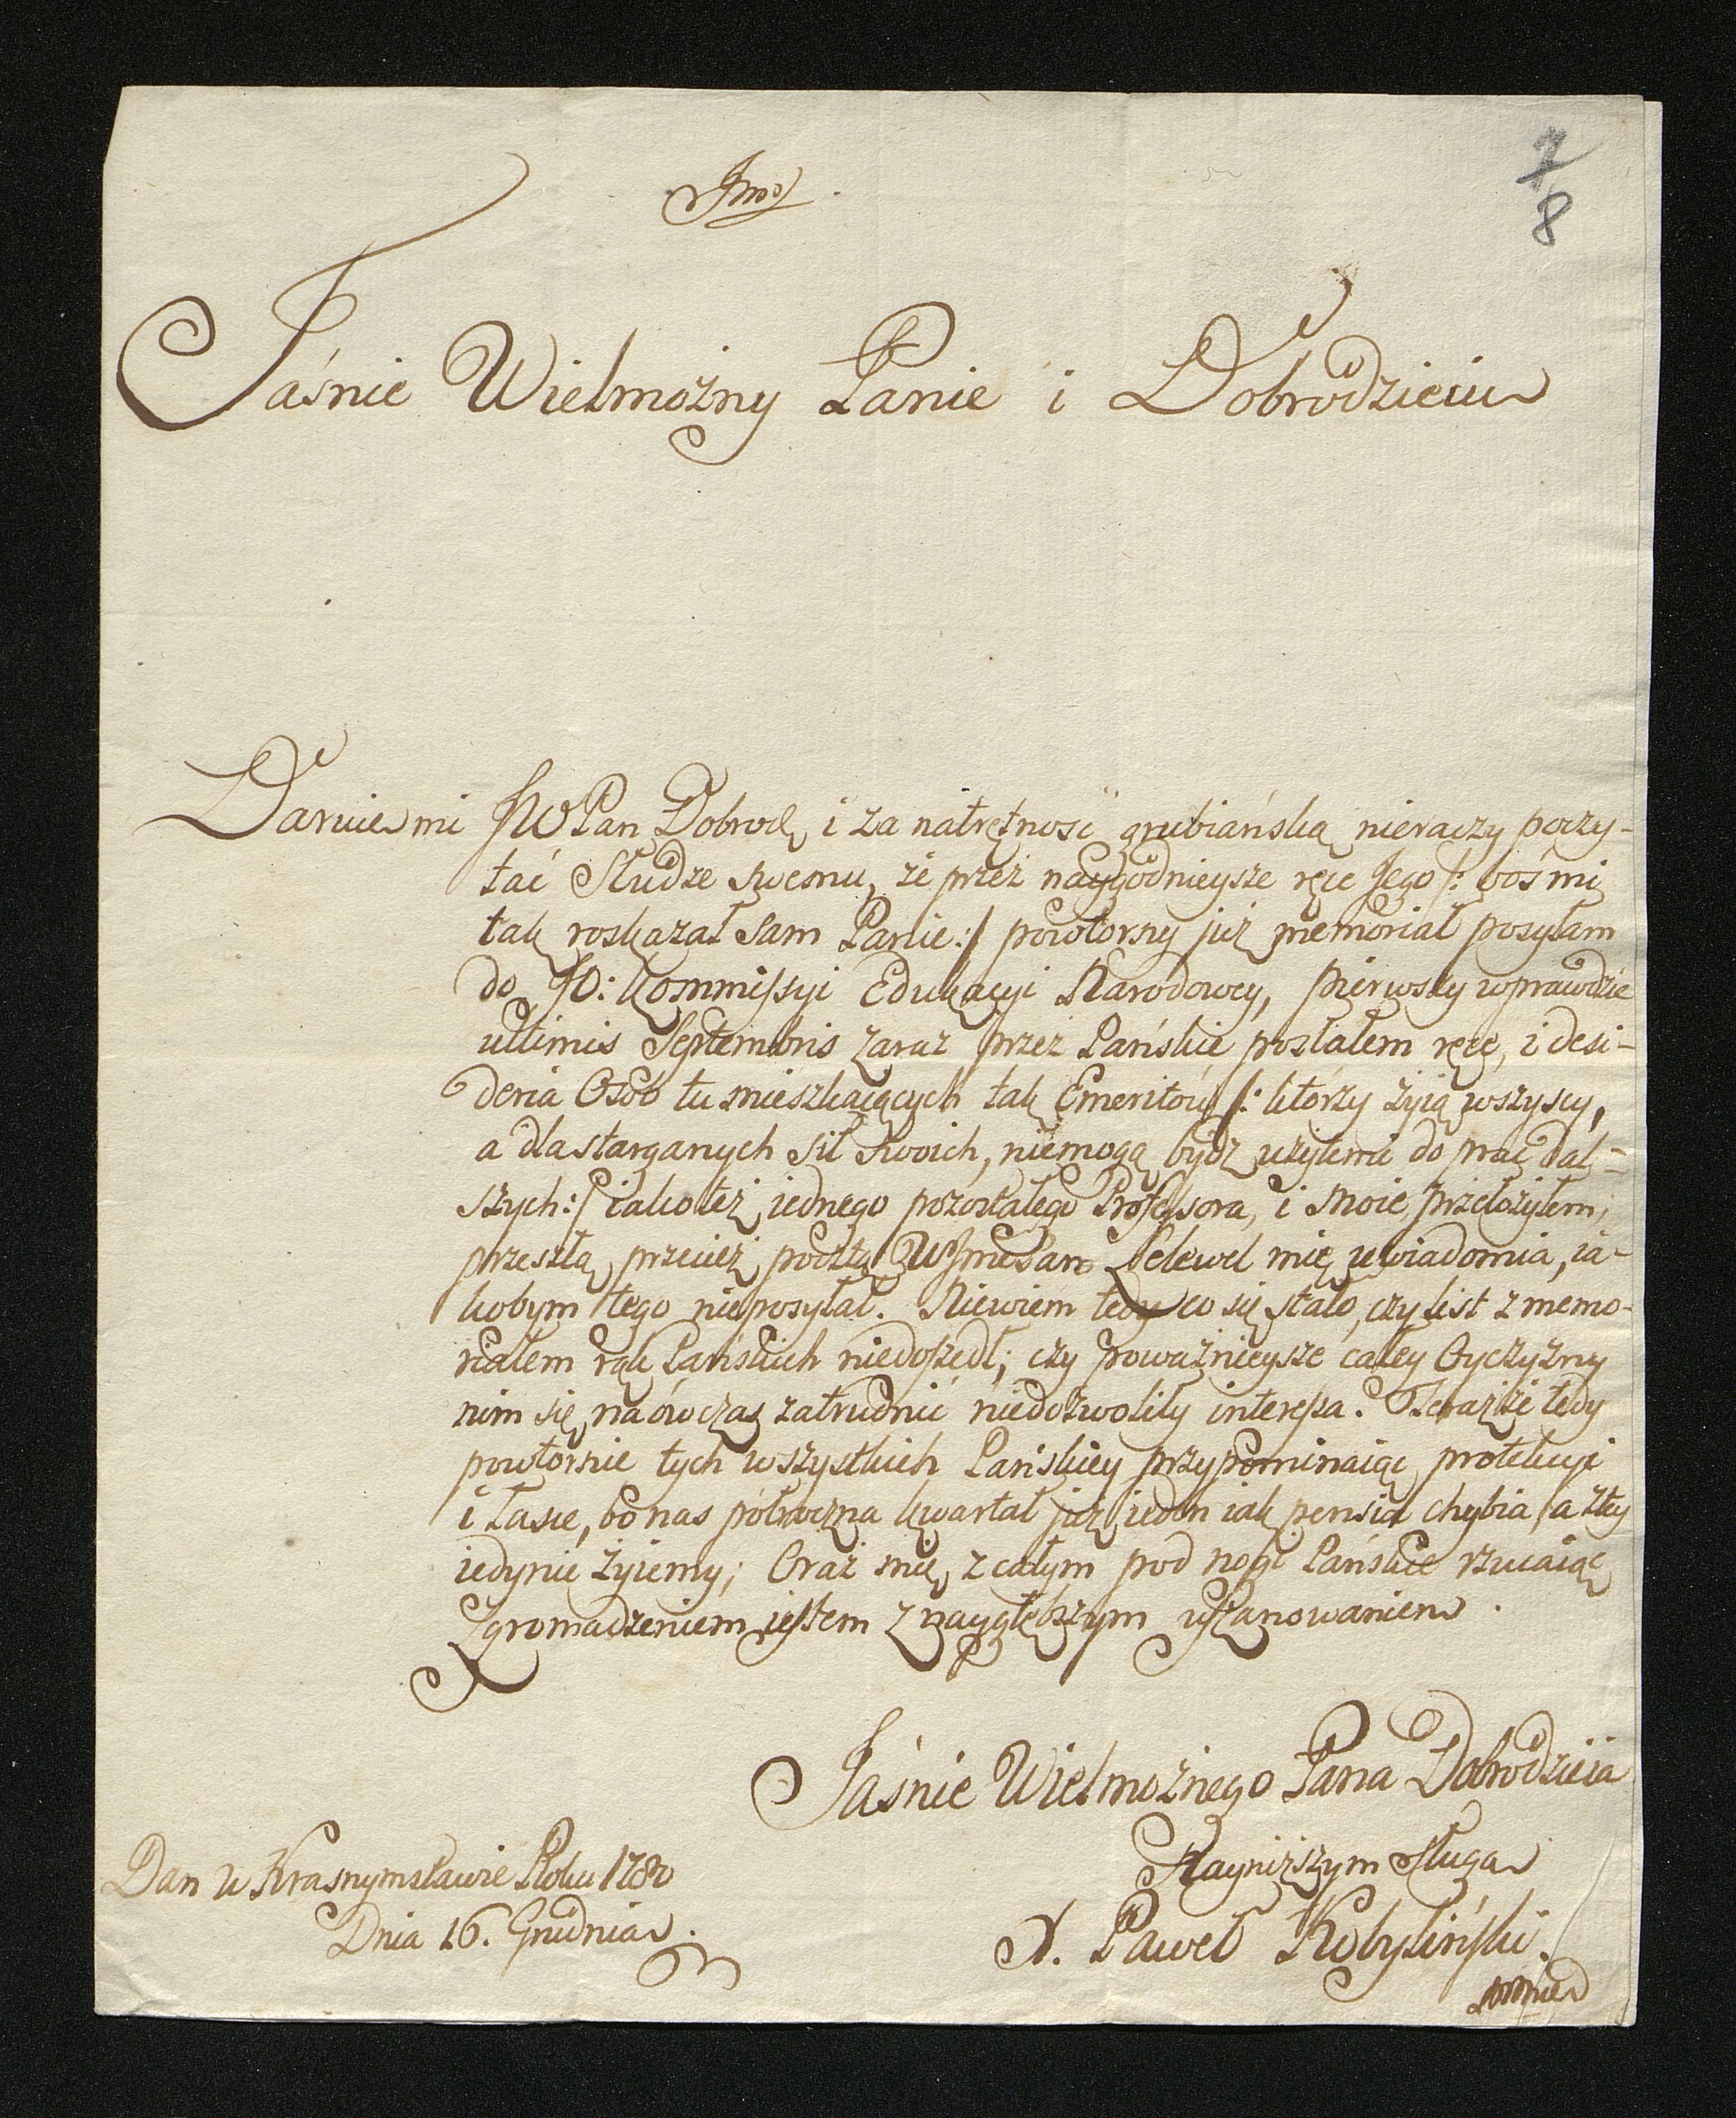 7
8
Jmo
Jaśnie Wielmożny Panie i Dobrodzieiu
Daruie mi JWPan Dobrodz i za natrętność grubiańską nieraczy poczy-
tać Słudze swemu, że przez naygodnieysze ręce Jego /: boś mi
tak roskazał sam Panie :/ powtorny już memoriał posyłam
do JO: Kommissyi Edukacyi Narodowey, pierwszy wprawdzie
ultimis Septembris zaraz przez Pańskie posłałem ręce, i desi-
deria Osób tu mieszkaiących tak Emeritów /: którzy żyią wszyscy,
a dla starganych sił swoich, niemogą bydz użytemi do prac dal-
szych :/ iako też iednego pozostałego Professora, i moie przełożyłem,
przeszłą przecież pocztą WJmć Pan Lelewel mię uwiadomia, ia-
kobym tego nieposyłał. Niewiem tedy co się stało, czy list z memo-
riałem rąk Pańskich niedoszedł; czy poważnieysze całey Oyczyzny
nim się naówczas zatrudnić niedozwoliły interessa. Terazże tedy
powtornie tych wszystkich Pańskiey przypominaiąc protekcyi
i łasce, bo nas półroczna kwartał już ieden iak pensia chybia, a z tey
iedynie żyiemy; Oraz mię z całym pod nogi Pańskie rzucaiąc
Zgromadzeniem iestem z naygłębszym uszanowaniem.
Jaśnie Wielmożnego Pana Dobrodzieia
Nayniższym Sługą
X. Paweł Kobyliński
Dan w Krasnymstawie Roku 1780
Dnia 16. Grudnia.